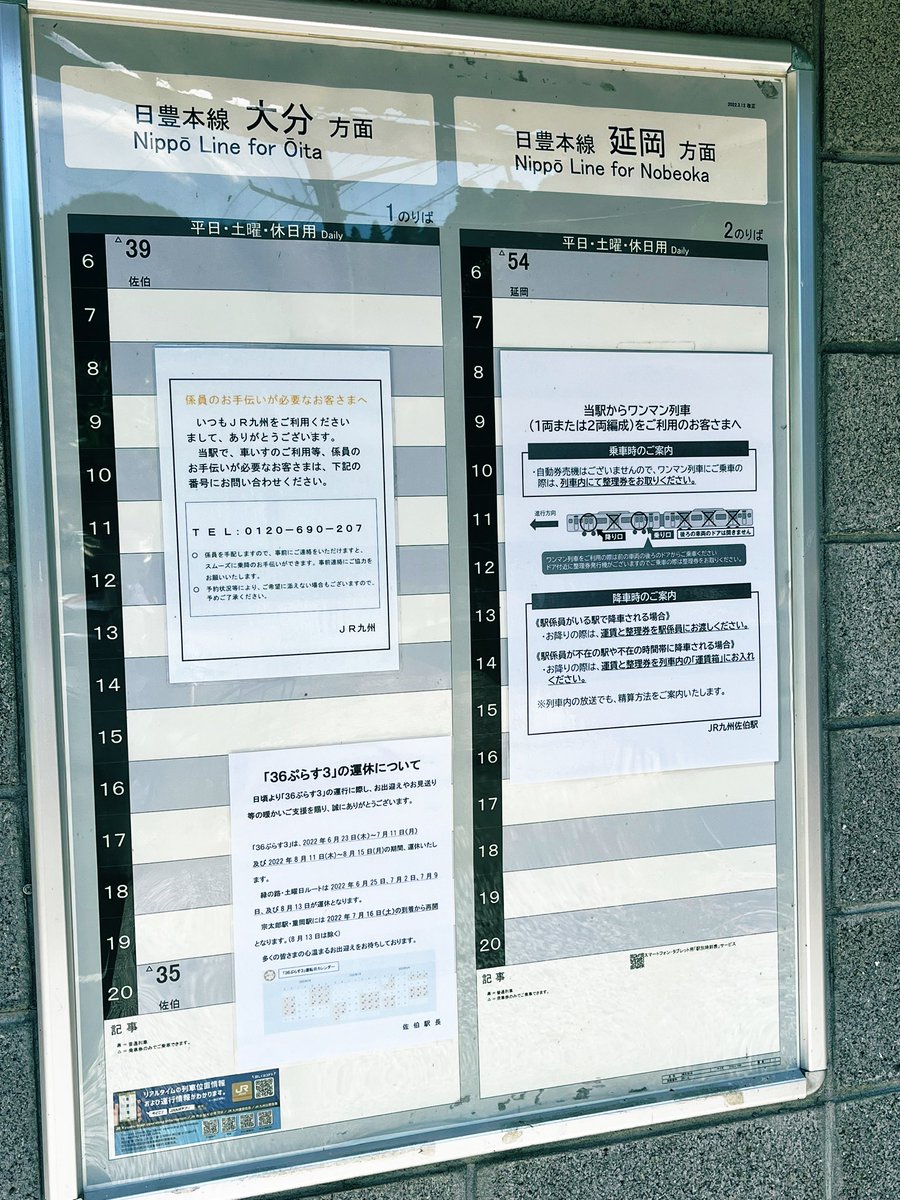 日豊本線 大分 方面
Nippō Line for Ōita
1のりば
平日・土曜・休日用 Daily
6 △39 佐伯
7
8
9
10
11
12
13
14
15
16
17
18
19
20 △35 佐伯
記事
黒=普通列車
係員のお手伝いが必要なお客さまへ
いつもJR九州をご利用ください
まして、ありがとうございます。
当駅で、車いすのご利用等、係員の
お手伝いが必要なお客さまは、下記の
番号にお問い合わせください。
TEL:0120-690-207
○ 係員を手配しますので、事前にご連絡をいただけますと、
スムーズに乗降のお手伝いができます。事前連絡にご協力を
お願いいたします。
○ 予約状況等により、ご希望に添えない場合もございますので、
予めご了承ください。
JR九州
「36ぷらす3」の運休について
日頃より「36ぷらす3」の運行に際し、お出迎えやお見送り
等の暖かいご支援を賜り、誠にありがとうございます。
「36ぷらす3」は、2022年6月23日(木)~7月11日(月)
及び2022年8月11日(木)~8月15日(月)の期間、運休いたし
ます。
緑の路・土曜日ルートは2022年6月25日、7月2日、7月9
日、及び8月13日が運休となります。
宗太郎駅・重岡駅には2022年7月16日(土)の到着から再開
となります。(8月13日は除く)
多くの皆さまの心温まるお出迎えをお待ちしております。
「36ぷらす3」運転日カレンダー
佐伯駅長
リアルタイムの列車位置情報
および運行情報がわかります。
JR
2022.3.12 改正
日豊本線 延岡 方面
Nippō Line for Nobeoka
2のりば
平日・土曜・休日用 Daily
6 △54 延岡
7
8
9
10
11
12
13
14
15
16
17
18
19
20
当駅からワンマン列車
(1両または2両編成)をご利用のお客さまへ
乗車時のご案内
・自動券売機はございませんので、ワンマン列車にご乗車の
際は、列車内にて整理券をお取りください。
進行方向
降り口
乗り口
後ろの車両のドアは開きません
ワンマン列車をご利用の際は前の車両の後ろのドアからご乗車ください
ドア付近に整理券発行機がございますのでご乗車の際は整理券をお取りください。
降車時のご案内
《駅係員がいる駅で降車される場合》
・お降りの際は、運賃と整理券を駅係員にお渡しください。
《駅係員が不在の駅や不在の時間帯に降車される場合》
・お降りの際は、運賃と整理券を列車内の「運賃箱」にお入れ
ください。
※列車内の放送でも、精算方法をご案内いたします。
JR九州佐伯駅
スマートフォン・タブレット用「駅別時刻表」サービス
記事
黒=普通列車